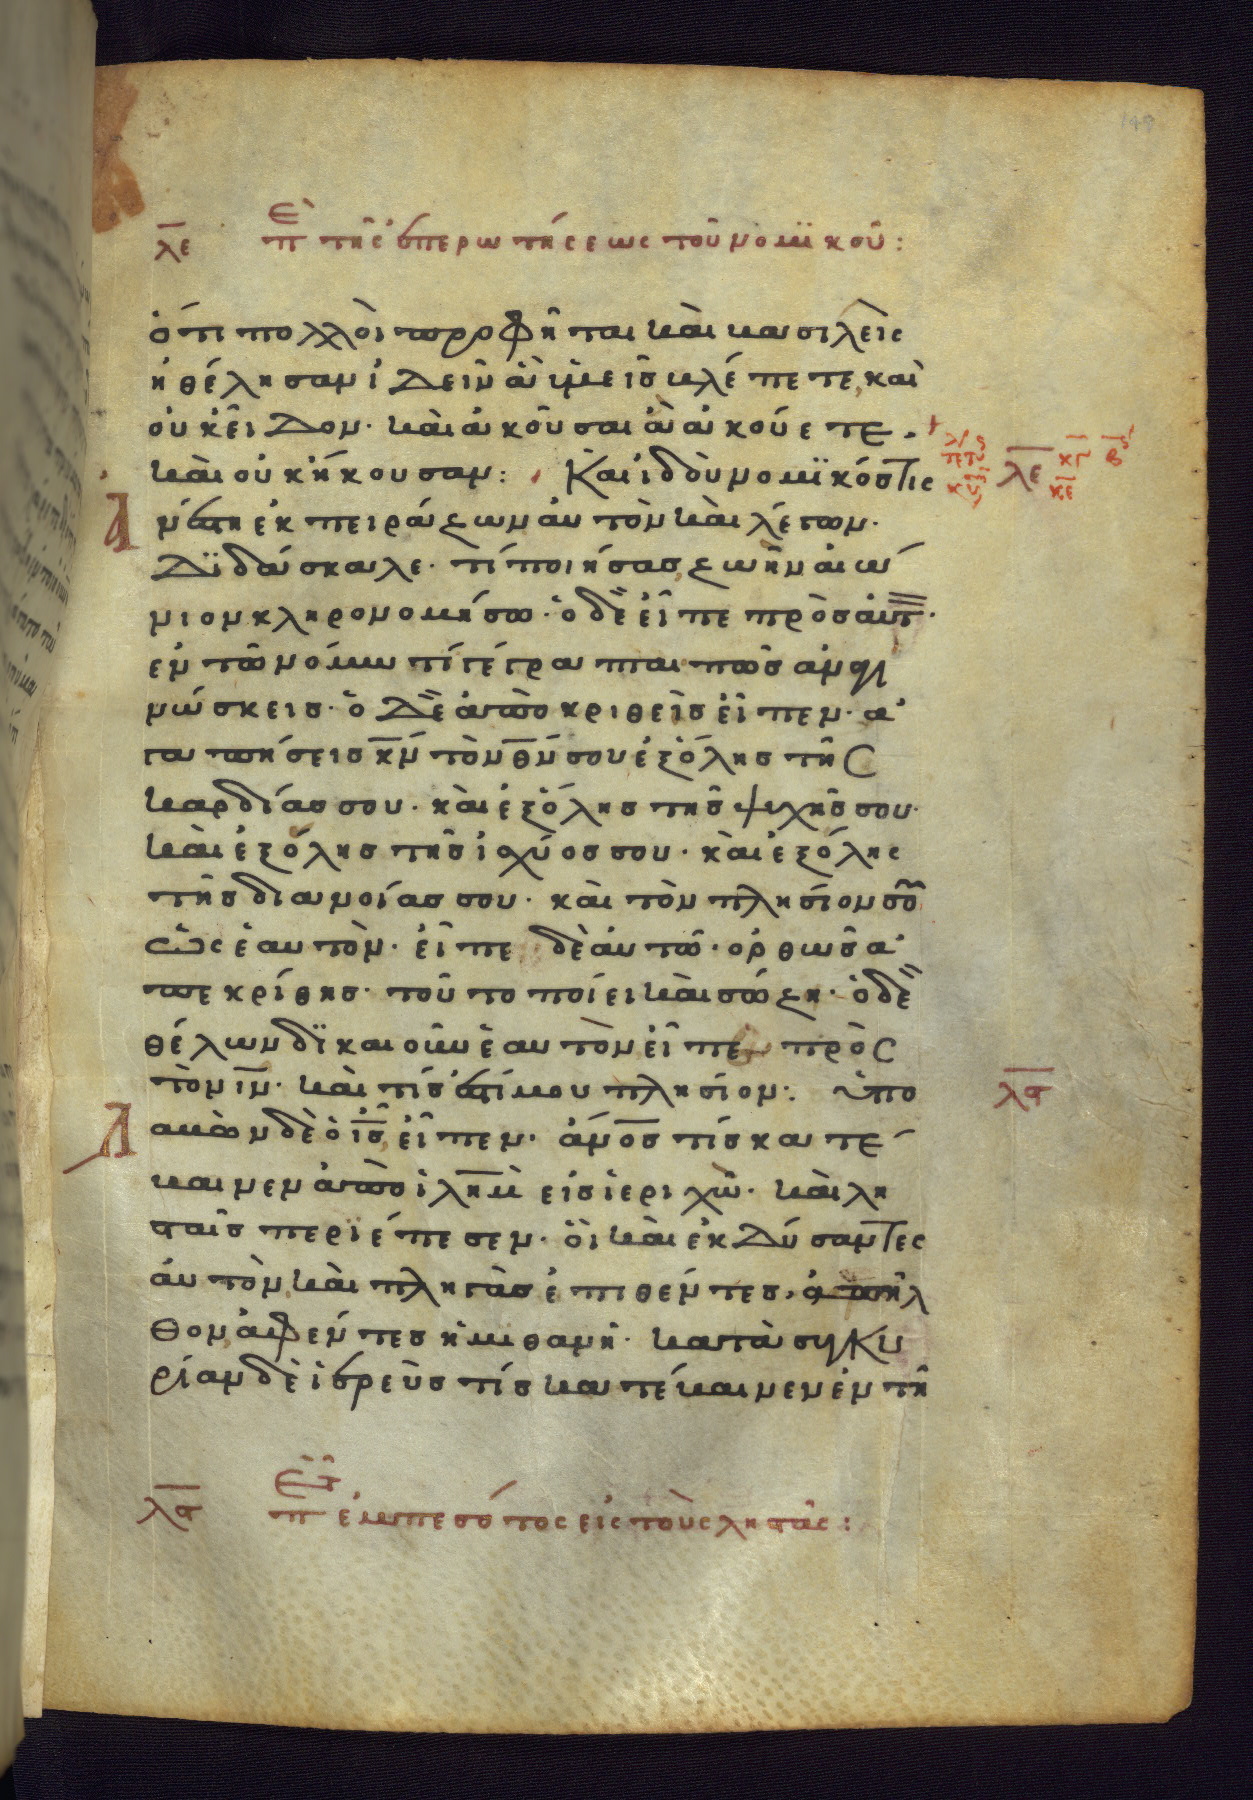 λε Π τῆς ἐπερωτήσεως τοῦ νομικοῦ:
ὅτι πολλοὶ προφῆται καὶ βασιλεῖς
ἠθέλησαν ἰδεῖν ἃ ὑμεῖς βλέπετε, καὶ
οὐκ εἶδον· καὶ ἀκοῦσαι ἃ ἀκούετε,
καὶ οὐκ ἤκουσαν: Καὶ ἰδοὺ νομικός τις
λε κγ κε
ἀνέστη ἐκπειράζων αὐτὸν καὶ λέγων·
διδάσκαλε· τί ποιήσας ζωὴν αἰώ
νιον κληρονομήσω· ὁ δὲ εἶπε πρὸς αὐτ·
ἐν τῶ νόμω τί γέγραπται πῶς ἀναγι
νώσκεις· ὁ δὲ ἀποκριθεὶς εἶπεν· ἀ
γαπήσεις κν τὸν θν σου ἐξ ὅλης τῆς
καρδίας σου· καὶ ἐξ ὅλης τῆς ψυχῆς σου·
καὶ ἐξ ὅλης τῆς ἰσχύος σου· καὶ ἐξ ὅλης
τῆς διανοίας σου· καὶ τὸν πλησίον σοῦ
ὡς ἑαυτὸν· εἶπε δὲ αὐτῶ· ὀρθῶς ἀ
πεκρίθης· τοῦτο ποίει καὶ ζήση· ὁ δὲ
θέλων δικαιοῦν ἑαυτὸν εἶπε πρὸς
τὸν ιν· καὶ τίς ἐστί μου πλησίον: ὑπο
λς
λαβὼν δὲ ὁ ις εἶπεν· ἄνος τίς κατέ
βαινεν ἀπὸ ιλημ εἰς ἱεριχῶ· καὶ λη
σταῖς περιέπεσεν· οἳ καὶ ἐκδύσαντες
αὐτὸν καὶ πληγὰς ἐπιθέντες, ἀπῆλ
θον ἀφέντες ἡμιθανῆ· κατὰ συγκυ
ρίαν δὲ ἱερεὺς τίς κατέβαινεν ἐν τῆ
λς Π ἐμπεσόντος εἰς τοὺς ληστάς: